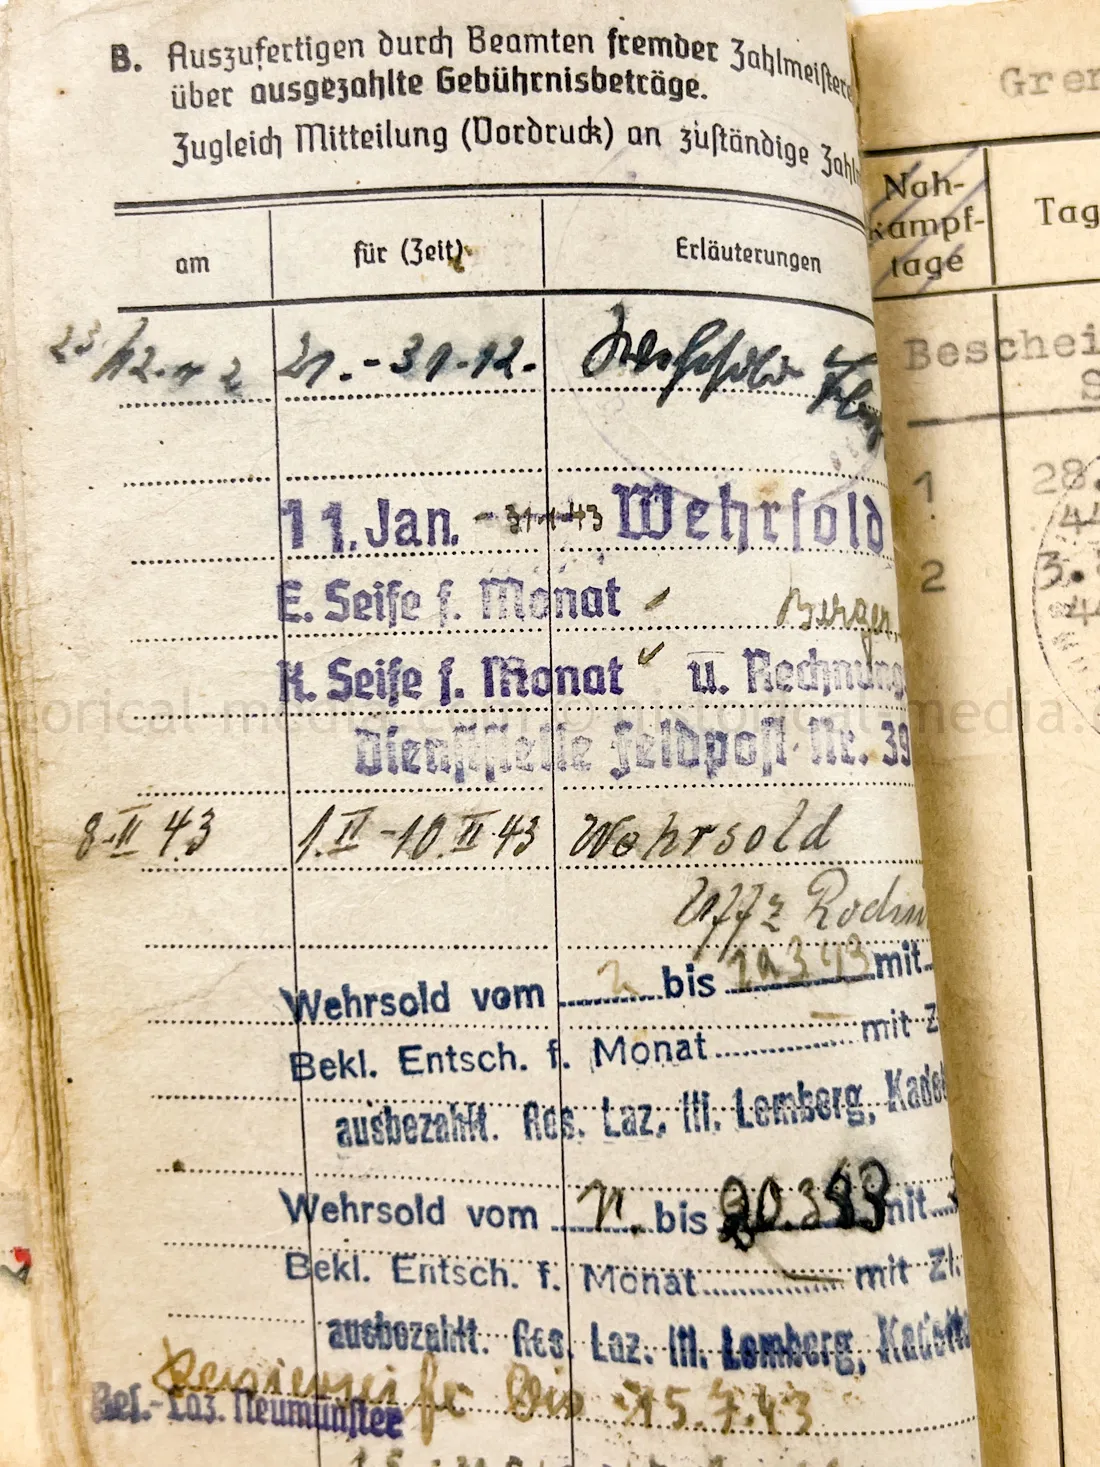 B. Auszufertigen durch Beamten fremder Zahlmeistere
über ausgezahlte Gebührnisbeträge.
Zugleich Mitteilung (Vordruck) an zuständige Zahl
am
für (Zeit)
Erläuterungen
23/12.42 21.-31.12.
11. Jan. - 31.1.43 Wehrsold
E. Seife f. Monat
K. Seife f. Monat u. Rechnung
Dienststelle Feldpost-Nr. 39
8.II 43 1.II-10.II.43 Wehrsold
Uffz
Wehrsold vom bis 10.3.43 mit
Bekl. Entsch. f. Monat mit Z
ausbezahlt. Res. Laz. III. Lemberg, Kade
Wehrsold vom 11. bis 20.3.43 mit
Bekl. Entsch. f. Monat mit Zl.
ausbezahlt. Res. Laz. III. Lemberg, Kadett
bis 15.7.43
Res.-Laz. Neumünster
Gren
Nah-
kampf-
tage
Tag
Beschei
S
1 28.
44
2 3.
44
historical-media.com © historical-media.